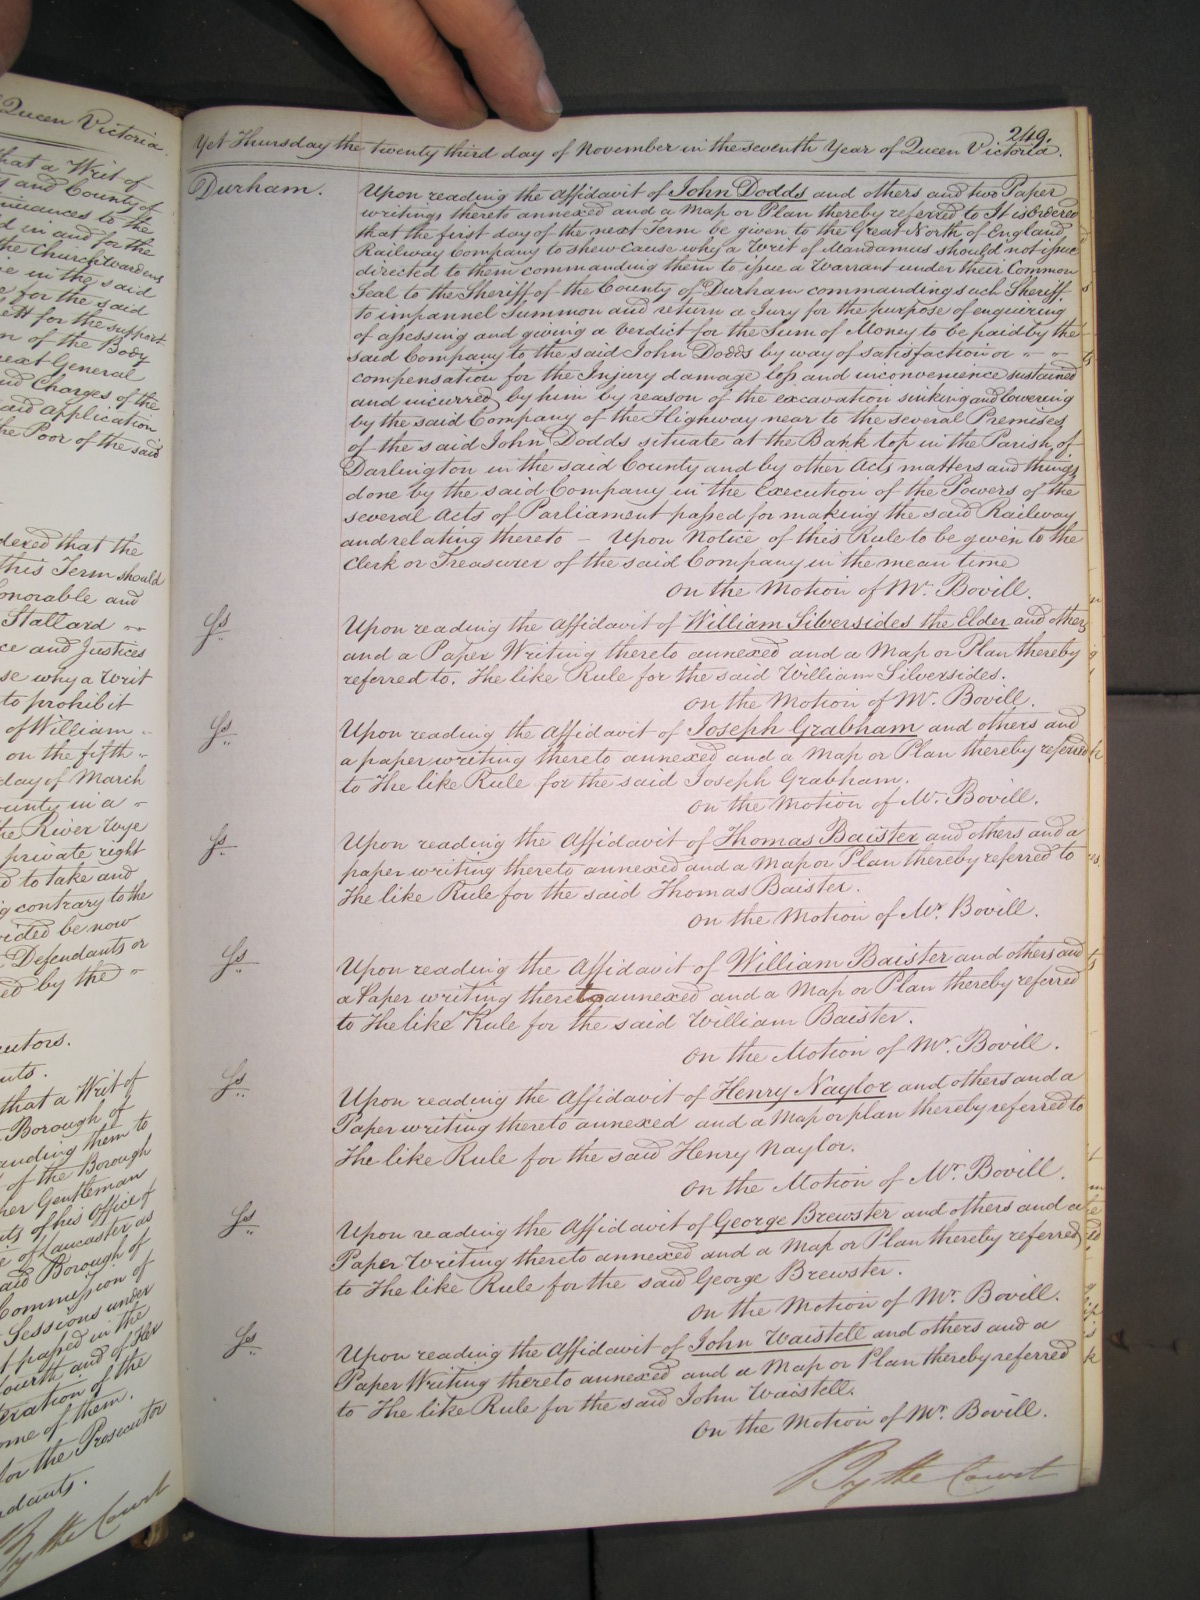 Queen Victoria.
hat a Writ of
and County of
nuances to the
d in and for the
the Churchwardens
in the said
for the said
for the support
of the Body
next General
and Charges of the
said application
the Poor of the said
dered that the
this Term should
onorable and
Stallard
ce and Justices
se why a Writ
to prohibit
of William
on the fifth
day of March
ounty in a
the River Wye
private right
d to take and
contrary to the
vided be now
Defendants or
ed by the
cutors.
that a Writ of
Borough of
anding them to
of the Borough
her Gentleman
of his Office of
of Lancaster as
aid Borough of
Commission of
Sessions under
passed in the
fourth and of Her
eration of the
ome of them.
for the Prosecutor
ndants.
By the Court
249.
Yet Thursday the twenty third day of November in the seventh Year of Queen Victoria.
Durham. Upon reading the Affidavit of John Dodds and others and two Paper
writings thereto annexed and a Map or Plan thereby referred to It is Ordered
that the first day of the next Term be given to the Great North of England
Railway Company to shew cause why a Writ of Mandamus should not issue
directed to them commanding them to issue a Warrant under their Common
Seal to the Sheriff of the County of Durham commanding such Sheriff
to impannel Summon and return a Jury for the purpose of enquiring
of assessing and giving a Verdict for the Sum of Money to be paid by the
said Company to the said John Dodds by way of satisfaction or
compensation for the Injury damage loss and inconvenience sustained
and incurred by him by reason of the excavation sinking and lowering
by the said Company of the Highway near to the several Premises
of the said John Dodds situate at the Bank top in the Parish of
Darlington in the said County and by other Acts matters and things
done by the said Company in the Execution of the Powers of the
several Acts of Parliament passed for making the said Railway
and relating thereto - Upon Notice of this Rule to be given to the
Clerk or Treasurer of the said Company in the mean time
On the Motion of Mr. Bovill.
Upon reading the Affidavit of William Silversides the Elder and others
and a Paper Writing thereto annexed and a Map or Plan thereby
referred to. The like Rule for the said William Silversides.
On the Motion of Mr. Bovill.
Upon reading the Affidavit of Joseph Grabham and others and
a paper writing thereto annexed and a Map or Plan thereby referred
to The like Rule for the said Joseph Grabham.
On the Motion of Mr. Bovill.
Upon reading the Affidavit of Thomas Baister and others and a
paper writing thereto annexed and a Map or Plan thereby referred to
The like Rule for the said Thomas Baister.
On the Motion of Mr. Bovill.
Upon reading the Affidavit of William Baister and others and
a Paper writing thereto annexed and a Map or Plan thereby referred
to The like Rule for the said William Baister.
On the Motion of Mr. Bovill.
Upon reading the Affidavit of Henry Naylor and others and a
Paper writing thereto annexed and a Map or plan thereby referred to
The like Rule for the said Henry Naylor.
On the Motion of Mr. Bovill.
Upon reading the Affidavit of George Brewster and others and a
Paper Writing thereto annexed and a Map or Plan thereby referred
to The like Rule for the said George Brewster.
On the Motion of Mr. Bovill.
Upon reading the Affidavit of John Waistell and others and a
Paper Writing thereto annexed and a Map or Plan thereby referred
to The like Rule for the said John Waistell.
On the Motion of Mr. Bovill.
By the Court